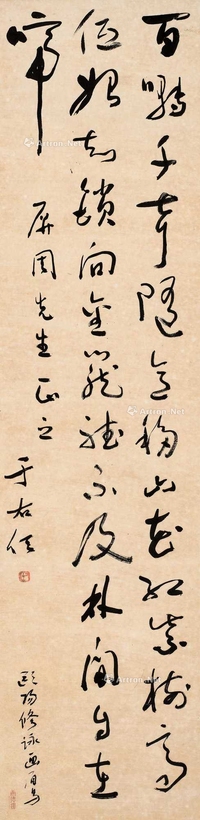 百啭千声随意移山花红紫树高
低始知锁向金笼听不及林间自在
啼
屏周先生正之
于右任
欧阳修咏画眉鸟